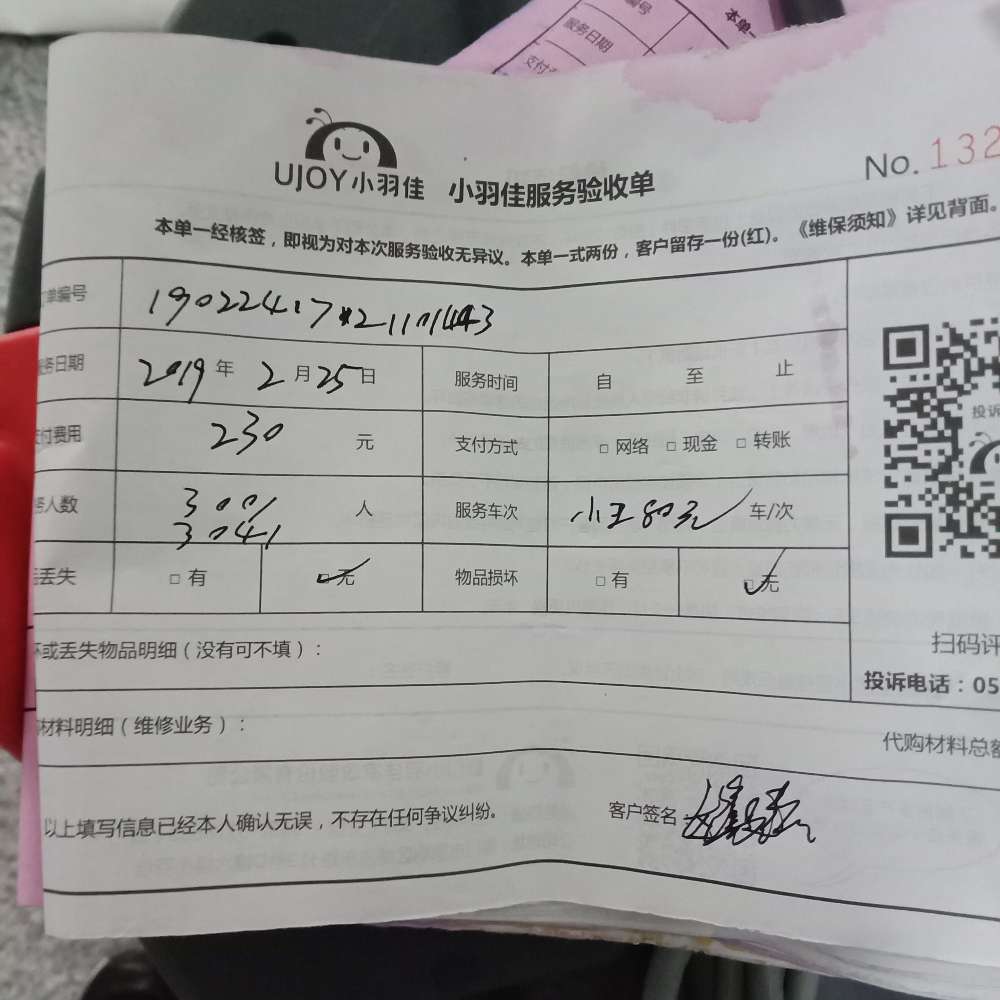 服务日期
本单一
UJOY小羽佳 小羽佳服务验收单
No. 132
本单一经核签，即视为对本次服务验收无异议。本单一式两份，客户留存一份(红)。《维保须知》详见背面。
单编号
务日期 2019年 2月25日 服务时间 自 至 止
付费用 230 元 支付方式 □网络 □现金 □转账
务人数 3001 人 服务车次 小王80元 车/次
3041
丢失 □有 □无 物品损坏 □有 □无
投诉
坏或丢失物品明细（没有可不填）：
扫码评
投诉电话：05
材料明细（维修业务）：
代购材料总额
以上填写信息已经本人确认无误，不存在任何争议纠纷。
客户签名